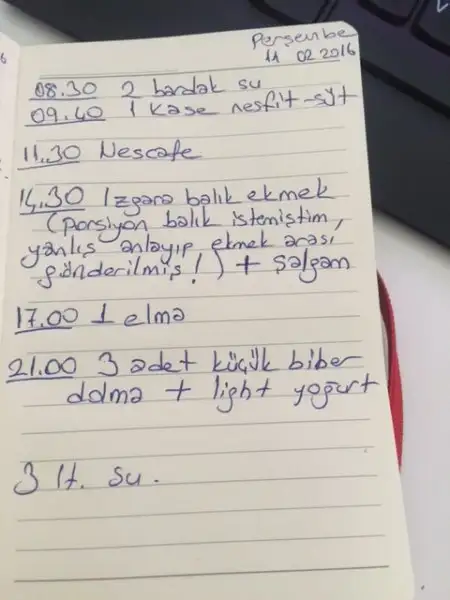 Perşembe
11 02 2016
08.30 2 bardak su
09.40 1 kase nesfit-süt
11.30 Nescafe
14.30 Izgara balık ekmek
(Porsiyon balık istemiştim,
yanlış anlayıp ekmek arası
gönderilmiş!) + Şalgam
17.00 1 elma
21.00 3 adet küçük biber
dolma + light yoğurt
3 lt. su.